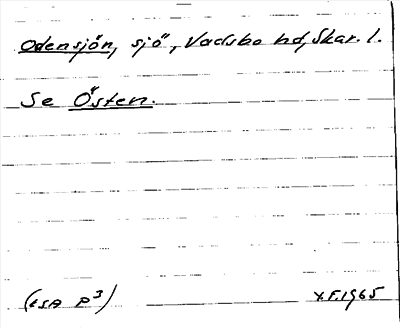 Odensjön, sjö, Vadsbo hd, Skar. l.
Se Östen.
(LSA P³) F.1965